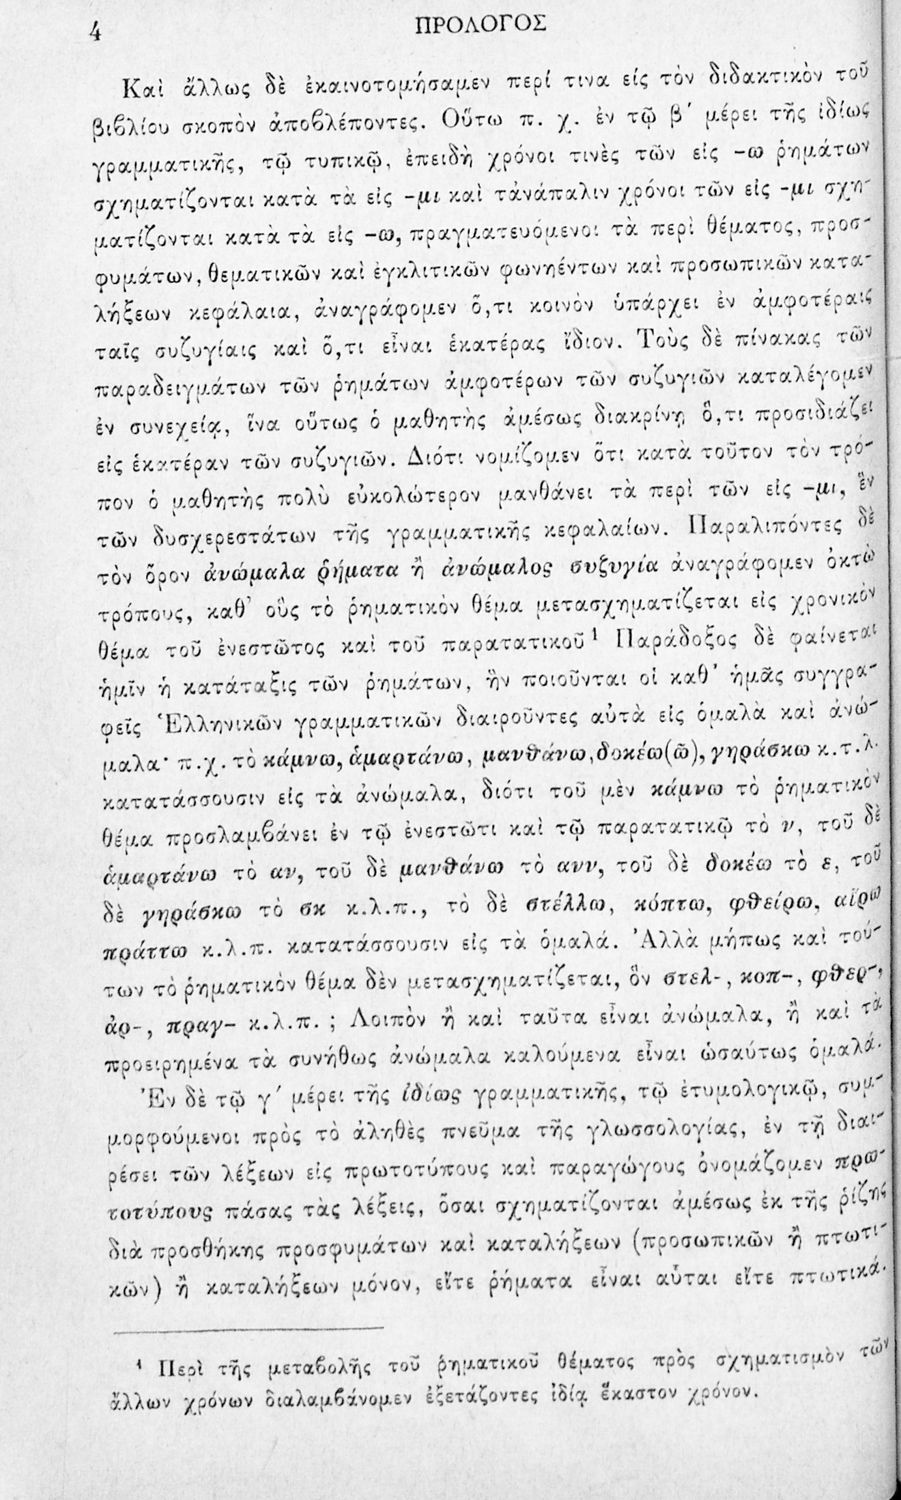 4
ΠΡΟΛΟΓΟΣ
Καὶ ἄλλως δὲ ἐκαινοτομήσαμεν περί τινα εἰς τὸν διδακτικὸν τοῦ
βιβλίου σκοπὸν ἀποβλέποντες. Οὕτω π. χ. ἐν τῷ β΄ μέρει τῆς ἰδίως
γραμματικῆς, τῷ τυπικῷ, ἐπειδὴ χρόνοι τινὲς τῶν εἰς -ω ῥημάτων
σχηματίζονται κατὰ τὰ εἰς -μι καὶ τἀνάπαλιν χρόνοι τῶν εἰς -μι σχη-
ματίζονται κατὰ τὰ εἰς -ω, πραγματευόμενοι τὰ περὶ θέματος, προσ-
φυμάτων, θεματικῶν καὶ ἐγκλιτικῶν φωνηέντων καὶ προσωπικῶν κατα-
λήξεων κεφάλαια, ἀναγράφομεν ὅ,τι κοινὸν ὑπάρχει ἐν ἀμφοτέραις
ταῖς συζυγίαις καὶ ὅ,τι εἶναι ἑκατέρας ἴδιον. Τοὺς δὲ πίνακας τῶν
παραδειγμάτων τῶν ῥημάτων ἀμφοτέρων τῶν συζυγιῶν καταλέγομεν
ἐν συνεχείᾳ, ἵνα οὕτως ὁ μαθητὴς ἀμέσως διακρίνῃ ὅ,τι προσιδιάζει
εἰς ἑκατέραν τῶν συζυγιῶν. Διότι νομίζομεν ὅτι κατὰ τοῦτον τὸν τρό-
πον ὁ μαθητὴς πολὺ εὐκολώτερον μανθάνει τὰ περὶ τῶν εἰς -μι, ἓν
τῶν δυσχερεστάτων τῆς γραμματικῆς κεφαλαίων. Παραλιπόντες δὲ
τὸν ὅρον ἀνώμαλα ῥήματα ἢ ἀνώμαλος συζυγία ἀναγράφομεν ὀκτὼ
τρόπους, καθ᾽ οὓς τὸ ῥηματικὸν θέμα μετασχηματίζεται εἰς χρονικὸν
θέμα τοῦ ἐνεστῶτος καὶ τοῦ παρατατικοῦ¹ Παράδοξος δὲ φαίνεται
ἡμῖν ἡ κατάταξις τῶν ῥημάτων, ἣν ποιοῦνται οἱ καθ᾽ ἡμᾶς συγγρα-
φεῖς Ἑλληνικῶν γραμματικῶν διαιροῦντες αὐτὰ εἰς ὁμαλὰ καὶ ἀνώ-
μαλα· π.χ. τὸ κάμνω, ἁμαρτάνω, μανθάνω, δοκέω(ῶ), γηράσκω κ.τ.λ.
κατατάσσουσιν εἰς τὰ ἀνώμαλα, διότι τοῦ μὲν κάμνω τὸ ῥηματικὸν
θέμα προσλαμβάνει ἐν τῷ ἐνεστῶτι καὶ τῷ παρατατικῷ τὸ ν, τοῦ δὲ
ἁμαρτάνω τὸ αν, τοῦ δὲ μανθάνω τὸ ανν, τοῦ δὲ δοκέω τὸ ε, τοῦ
δὲ γηράσκω τὸ σκ κ.λ.π., τὸ δὲ στέλλω, κόπτω, φθείρω, αἴρω
πράττω κ.λ.π. κατατάσσουσιν εἰς τὰ ὁμαλά. Ἀλλὰ μήπως καὶ τού-
των τὸ ῥηματικὸν θέμα δὲν μετασχηματίζεται, ὂν στελ-, κοπ-, φθερ-,
ἀρ-, πραγ- κ.λ.π. ; Λοιπὸν ἢ καὶ ταῦτα εἶναι ἀνώμαλα, ἢ καὶ τὰ
προειρημένα τὰ συνήθως ἀνώμαλα καλούμενα εἶναι ὡσαύτως ὁμαλά.
Ἐν δὲ τῷ γ΄ μέρει τῆς ἰδίως γραμματικῆς, τῷ ἐτυμολογικῷ, συμ-
μορφούμενοι πρὸς τὸ ἀληθὲς πνεῦμα τῆς γλωσσολογίας, ἐν τῇ διαι-
ρέσει τῶν λέξεων εἰς πρωτοτύπους καὶ παραγώγους ὀνομάζομεν πρω-
τοτύπους πάσας τὰς λέξεις, ὅσαι σχηματίζονται ἀμέσως ἐκ τῆς ῥίζης
διὰ προσθήκης προσφυμάτων καὶ καταλήξεων (προσωπικῶν ἢ πτωτι-
κῶν) ἢ καταλήξεων μόνον, εἴτε ῥήματα εἶναι αὗται εἴτε πτωτικά.
¹ Περὶ τῆς μεταβολῆς τοῦ ῥηματικοῦ θέματος πρὸς σχηματισμὸν τῶν
ἄλλων χρόνων διαλαμβάνομεν ἐξετάζοντες ἰδίᾳ ἕκαστον χρόνον.